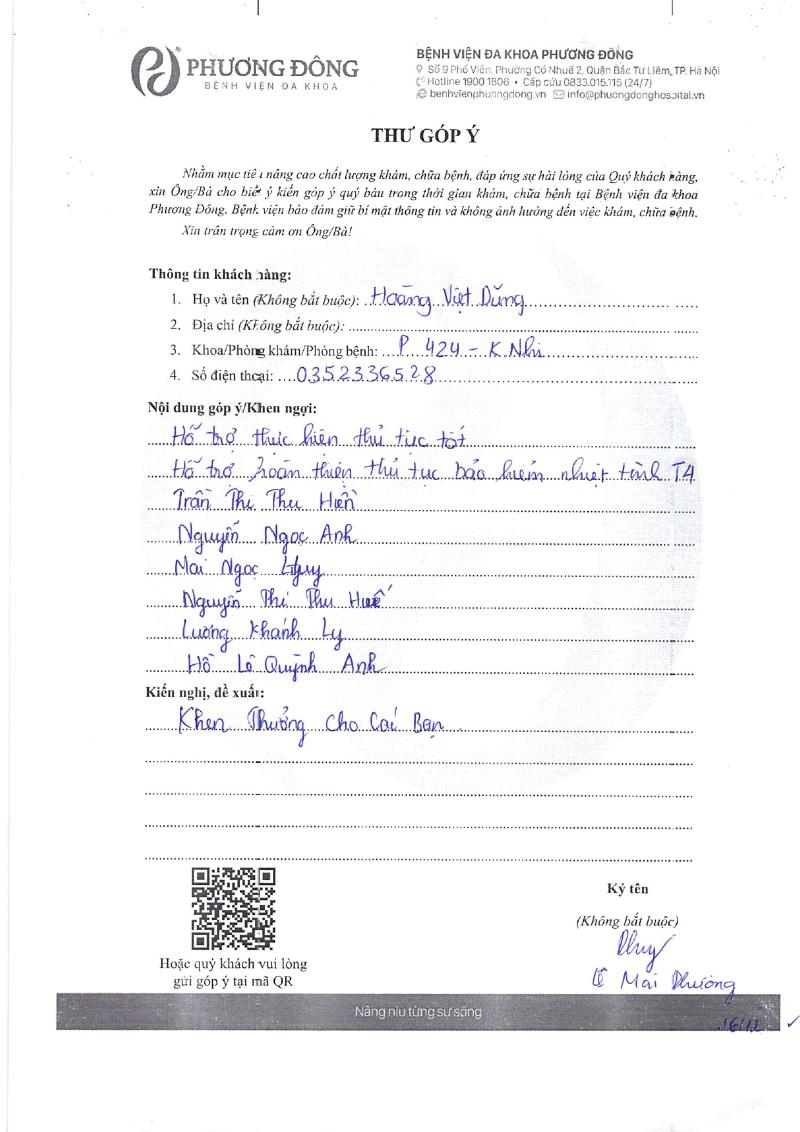 PHƯƠNG ĐÔNG
BỆNH VIỆN ĐA KHOA
BỆNH VIỆN ĐA KHOA PHƯƠNG ĐÔNG
Số 9 Phố Viên, Phường Cổ Nhuế 2, Quận Bắc Từ Liêm, TP. Hà Nội
Hotline 1900 1806 • Cấp cứu 0833.015.115 (24/7)
benhvienphuongdong.vn info@phuongdonghospital.vn
THƯ GÓP Ý
Nhằm mục tiêu nâng cao chất lượng khám, chữa bệnh, đáp ứng sự hài lòng của Quý khách hàng,
xin Ông/Bà cho biết ý kiến góp ý quý báu trong thời gian khám, chữa bệnh tại Bệnh viện đa khoa
Phương Đông. Bệnh viện bảo đảm giữ bí mật thông tin và không ảnh hưởng đến việc khám, chữa bệnh.
Xin trân trọng cảm ơn Ông/Bà!
Thông tin khách hàng:
1. Họ và tên (Không bắt buộc): Hoàng Việt Dũng
2. Địa chỉ (Không bắt buộc):
3. Khoa/Phòng khám/Phòng bệnh: P 424 - K Nhi
4. Số điện thoại: 0352336528
Nội dung góp ý/Khen ngợi:
Hỗ trợ thực hiện thủ tục tốt
Hỗ trợ hoàn thiện thủ tục bảo hiểm nhiệt tình T4
Trần Thị Thu Hiền
Nguyễn Ngọc Anh
Mai Ngọc
Nguyễn Thị Thu Huế
Lương Khánh Ly
Hồ Lê Quỳnh Anh
Kiến nghị, đề xuất:
Khen Thưởng cho Các Bạn
Ký tên
(Không bắt buộc)
Lê Mai Phương
Hoặc quý khách vui lòng
gửi góp ý tại mã QR
Nâng niu từng sự sống
16/12